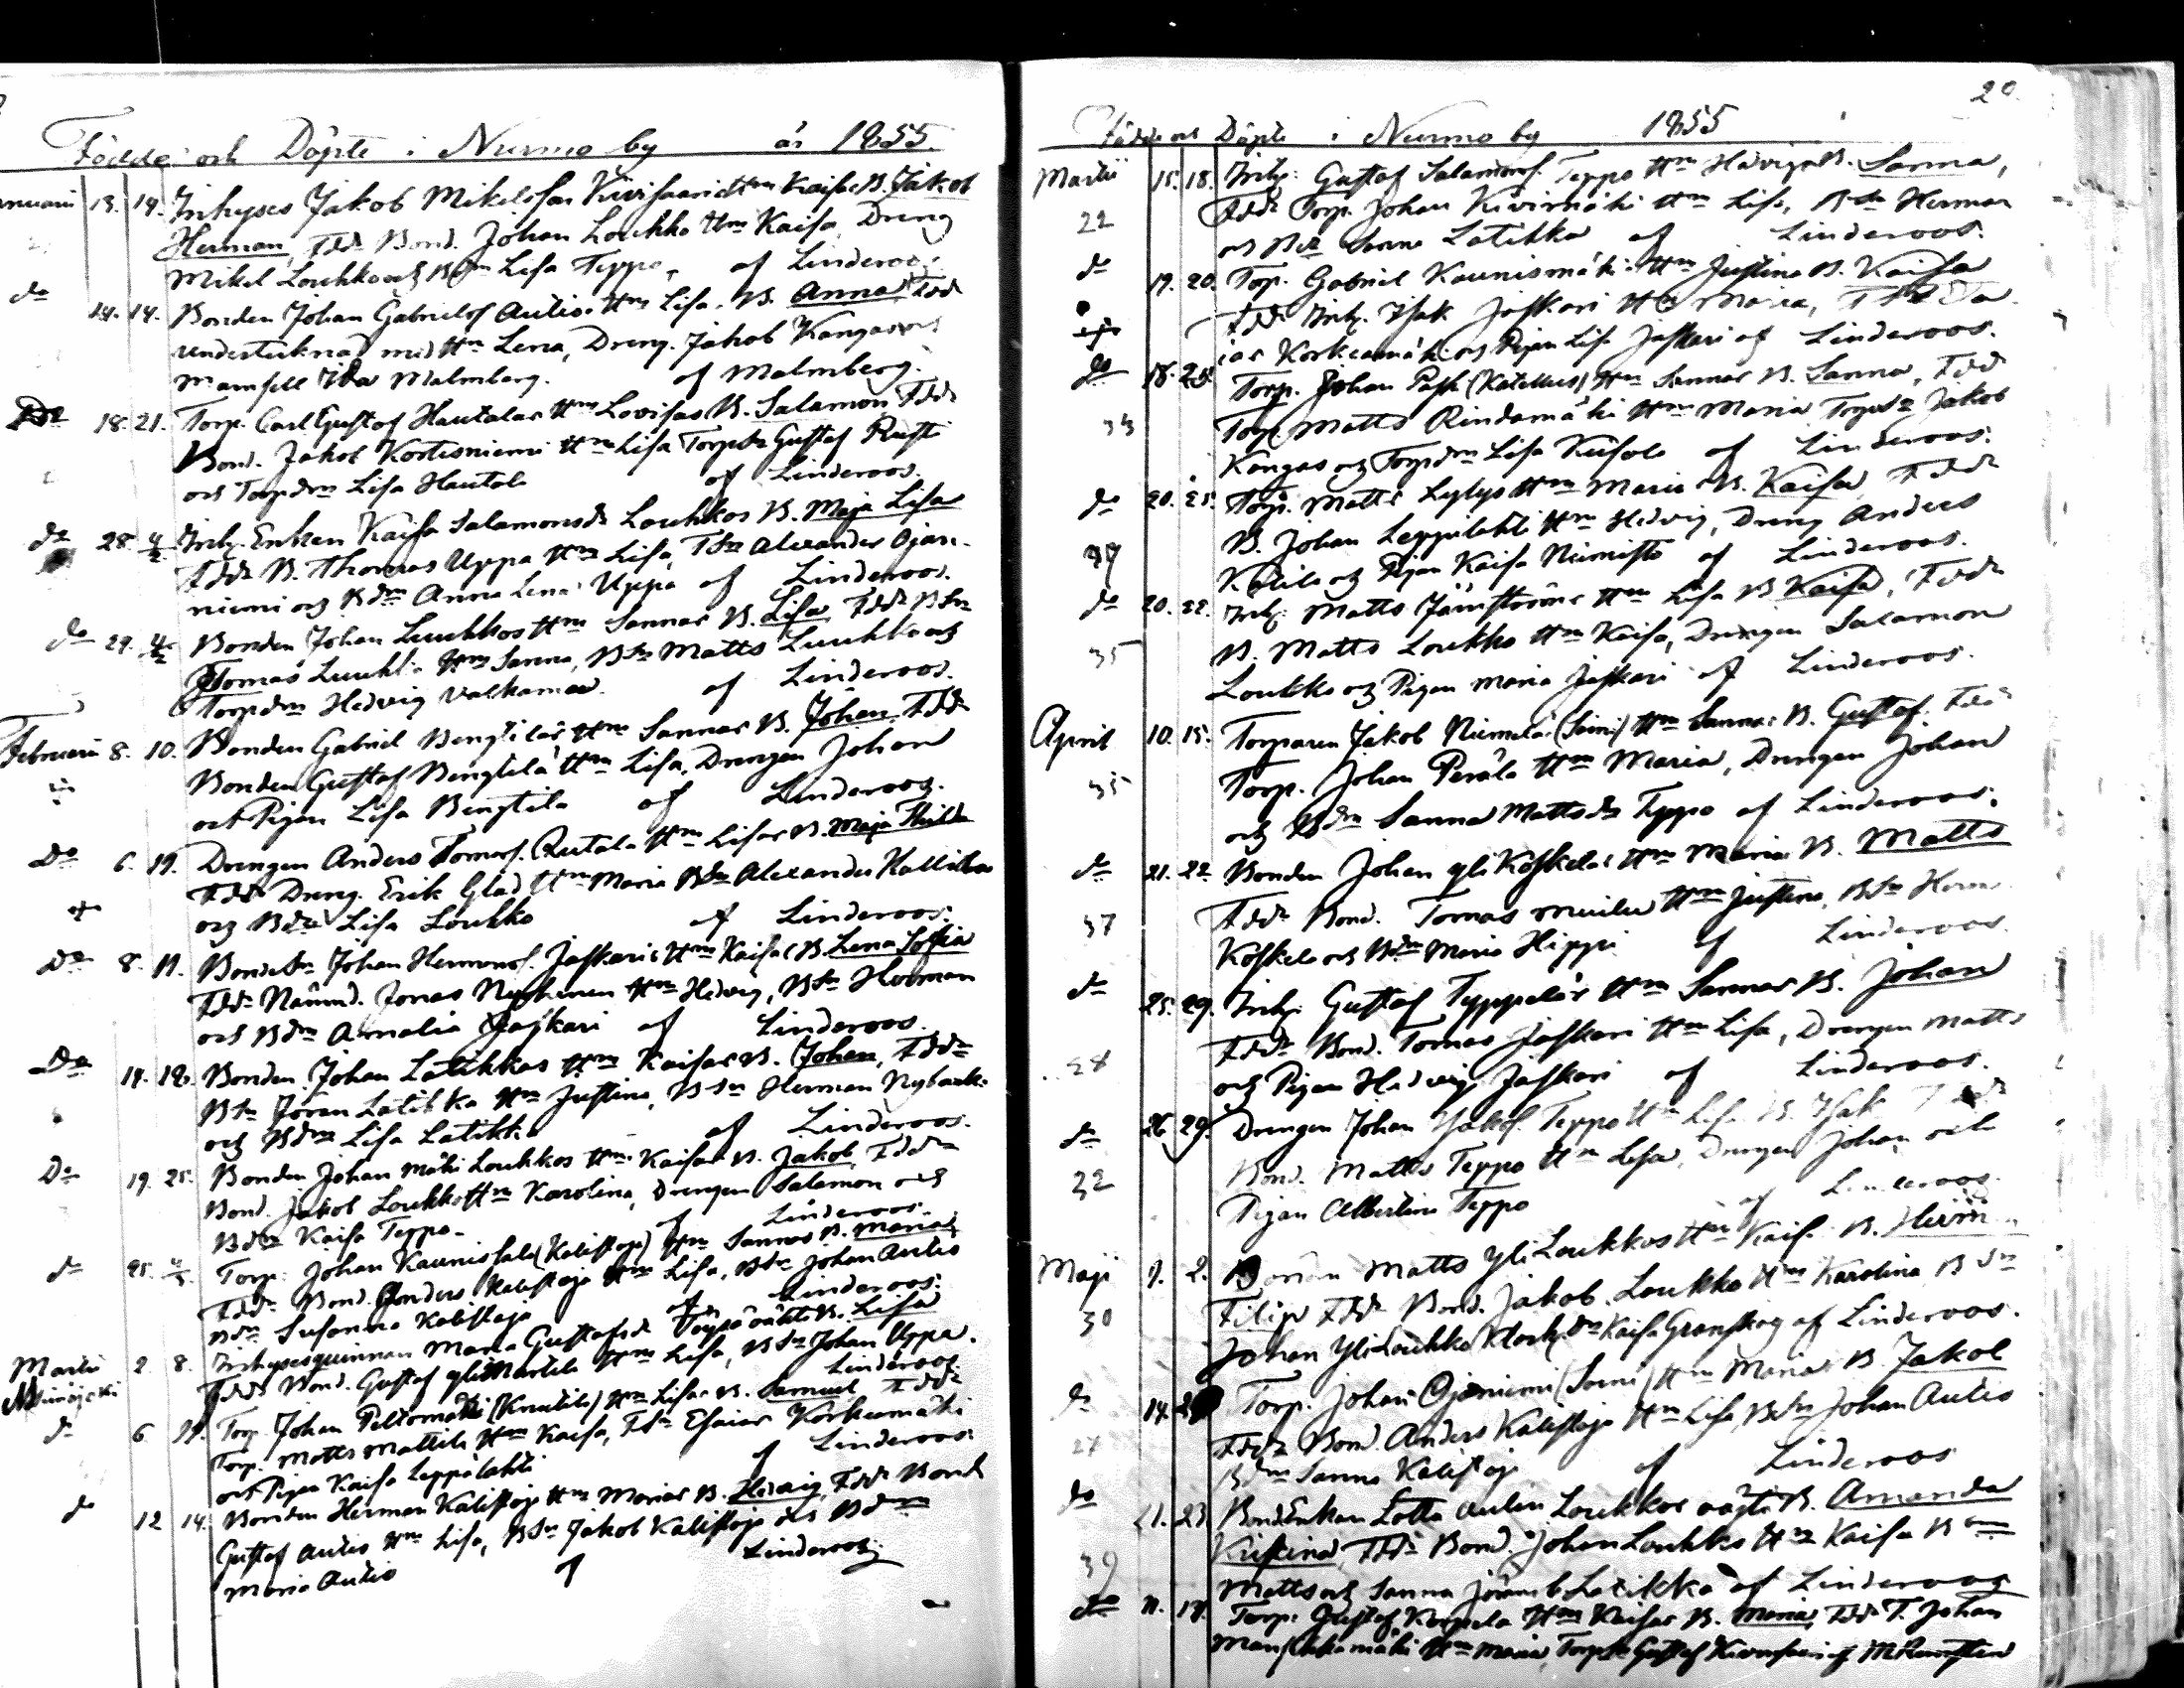 Födde och Döpte i Nurmo by år 1855.
Januarii 13. 14. Inhyses Jakob Mikelsson Kivisaari Hm Kaisa B. Jakob
Herman, Fddr Bond. Johan Loukko Hm Kaisa, Dreng
Mikel Loukko och Bdm Lisa Teppo, af Linderoos.
do 14. 14. Bonden Johan Gabrielss Autios Hm Lisa. B. Anna Fddr
undertecknad med Hm Lena, Dreng. Jakob Kangas och
Mamsell Ida Malmberg. af Malmberg.
Do 18. 21. Torp. Carl Gustaf Hautalas Hm Lovisas B. Salamon Fddr
Bond. Jakob Kortesniemi Hm Lisa Torpsn Gustaf
och Torpdm Lisa Hautala af Linderoos.
do 28. 4/2 Inh. Enkan Kaisa Salamonsdr Louhkos B. Maja Lisa
Fddr B. Thomas Uppa Hm Lisa, TSn Alexander Ojan-
niemi och Bdm Anna Lena Uppa af Linderoos.
do 29. 4/2 Bonden Johan Luuhkos Hm Sannas B. Lisa Fddr BSn
Tomas Luuhka Hm Sanna, BSn Matts Luuhka och
Torpdm Hedvig Valkamaa. af Linderoos.
Februarii 8. 10. Bonden Gabriel Bengtilas Hm Sannas B. Johan, Fddr
Bonden Gustaf Bengtilä Hm Lisa, Drengen Johan
och Pigan Lisa Bengtila af Linderoos.
Do 6. 19. Drengen Anders Tomass. Rutala Hm Lisas B. Maja
Fddr Dreng. Erik Glad Hm Maria BSn Alexander
och Bdm Lisa Loukko af Linderoos.
Do 8. 11. BondeSn Johan Hermans. Jaskaris Hm Kaisas B. Lena Sofia
Fddr Nämnd. Jonas Nyhinen Hm Hedvig, BSn Herman
och Bdm Amalia Jaskari af Linderoos.
Do 14. 18. Bonden Johan Latikkas Hm Kaisas B. Johan, Fddr
BSn Jöran Latikka Hm Justina, BSn Herman
och Bdm Lisa Latikka af Linderoos.
Do 19. 25. Bonden Johan Mäki Loukkos Hm Kaisas B. Jakob, Fddr
Bond. Jakob Loukko Hm Karolina, Drengen Salamon och
Bdm Kaisa Teppo. af Linderoos.
do 25. 4/3 Torp. Johan Kaunissalo (Kalistaja) Hm Sannas B. Maria
Fddr Bond. Anders Kalistaja Hm Lisa, BSn Johan Autio
Bdm Susanna Kalistaja af Linderoos.
Martii 2 8. Inhysesquinnan Maria Gustafsdr B. Lisa
Fddr Bond. Gustaf yli Martila Hm Lisa, BSn Johan Uppa.
Linderoos.
do 6 11. Torp. Johan Peltomäki (Knuutila) Hm Lisas B. Samuel Fddr
Torp. Matts Mattila Hm Kaisa, TSn Esaias Korkiamäki
och Pigan Kaisa Leppälahti af Linderoos.
do 12 14. Bonden Herman Kalistaja Hm Marias B. Hedvig, Fddr Bond
Gustaf Autio Hm Lisa, BSn Jakob Kalistaja och Bdm
Maria Autio af Linderoos.
20.
Födde och Döpte i Nurmo by 1855
Martii 15. 18. Inhy. Gustaf Salamonss. Teppo Hm Hedvigs B. Sanna,
22 Fddr Torp. Johan Kivimäki Hm Lisa, BSn Herman
och Bdr Sanna Latikka af Linderoos.
do 19. 20. Torp. Gabriel Kaunismäki Hm Justina B. Kaisa
Fddr Inhy. Isak Jaskari Hm Maria,
Korkeamäki och Pigan Lisa Jaskari af Linderoos.
do 18. 25. Torp. Johan Pass (Katillus) Hm Sannas B. Sanna, Fddr
33 Torp. Matts Rindamäki Hm Maria TorpSn Jakob
Kangas och Torpdm Lisa Kiisola af Linderoos.
do 20. 25. Torp. Matts Lylys Hm Maria B. Kaisa, Fddr
B. Johan Leppälahti Hm Hedvig, Dreng Anders
Kätilä och Pigan Kaisa Niemistö af Linderoos.
do 20. 22. Inhy. Matts Jämströms Hm Lisa B Kaisa, Fddr
35 B. Matts Loukko Hm Kaisa, Drengen Salamon
Loukko och Pigan Maria Jaskari af Linderoos.
April 10. 15. Torparen Jakob Niemelä (Soini) Hm Sannas B. Gustaf, Fddr
35 Torp. Johan Perälä Hm Maria, Drengen Johan
och Bdm Sanna Mattsdr Teppo af Linderoos.
do 21. 22. Bonden Johan yli Koskelas Hm Maria B. Matts
37 Fddr Bond. Tomas Hm Justina, BSn Herm.
Koskela och Bdm Maria Hippi af Linderoos.
do 25. 29. Inhy. Gustaf Typpeläs Hm Sannas B. Johan
Fddr Bond. Tomas Jaskari Hm Lisa, Drengen Matts
28 och Pigan Hedvig Jaskari af Linderoos.
do 26. 29. Drengen Johan Jakobss. Teppo Hm Lisa B. Isak Fddr
32 Bond. Matts Teppo Hm Lisa, Drengen Johan och
Pigan Albertina Teppo af Linderoos
Maji 1. 2. Bonden Matts Yli Loukkos Hm Kaisa B. Herm
30 Filip Fddr Bond. Jakob Loukko Hm Karolina BSn
Johan Yli Loukko Kaisa Granskog af Linderoos.
do 14. Torp. Johan Ojaniemi (Soini) Hm Marias B. Jakob
27 Fddr Bond. Anders Kalistaja Hm Lisa, BSn Johan Autio
Bdm Sanna Kalistaja af Linderoos
do 21. 23. BondEnkan Lotta Loukkos oägta B. Amanda
39 Kristina, Fddr Bond. Johan Louhko Hm Kaisa
Matts och Sanna Latikka af Linderoos
do 11. 17. Torp. Gustaf Korpela Hm Kaisas B. Maria, Fddr T. Johan
Mansikkamäki Hm Maria, TorpSn Gustaf